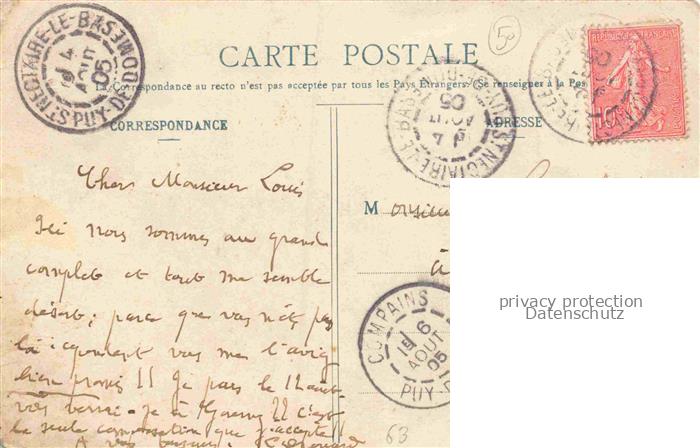 50
CARTE POSTALE
La Correspondance au recto n'est pas acceptée par tous les Pays Etrangers (Se renseigner à la Pos
CORRESPONDANCE
ADRESSE
ST NECTAIRE-LE-BAS
4
AOUT
05
PUY-DE-DOME
ST NECTAIRE-LE-BAS
4
AOUT
05
REPUBLIQUE FRANÇAISE
Cher Monsieur Louis
Ici nous sommes au grand
complet et tout me semble
désert; parce que vous n'êtes pas
là cependant vous me l'aviez
bien promis !! Je pars le
vous
la seule compensation que j'accepte
A vos
Monsieur
à
COMPAINS
6
AOUT
05
PUY-DE
63
privacy protection
Datenschutz